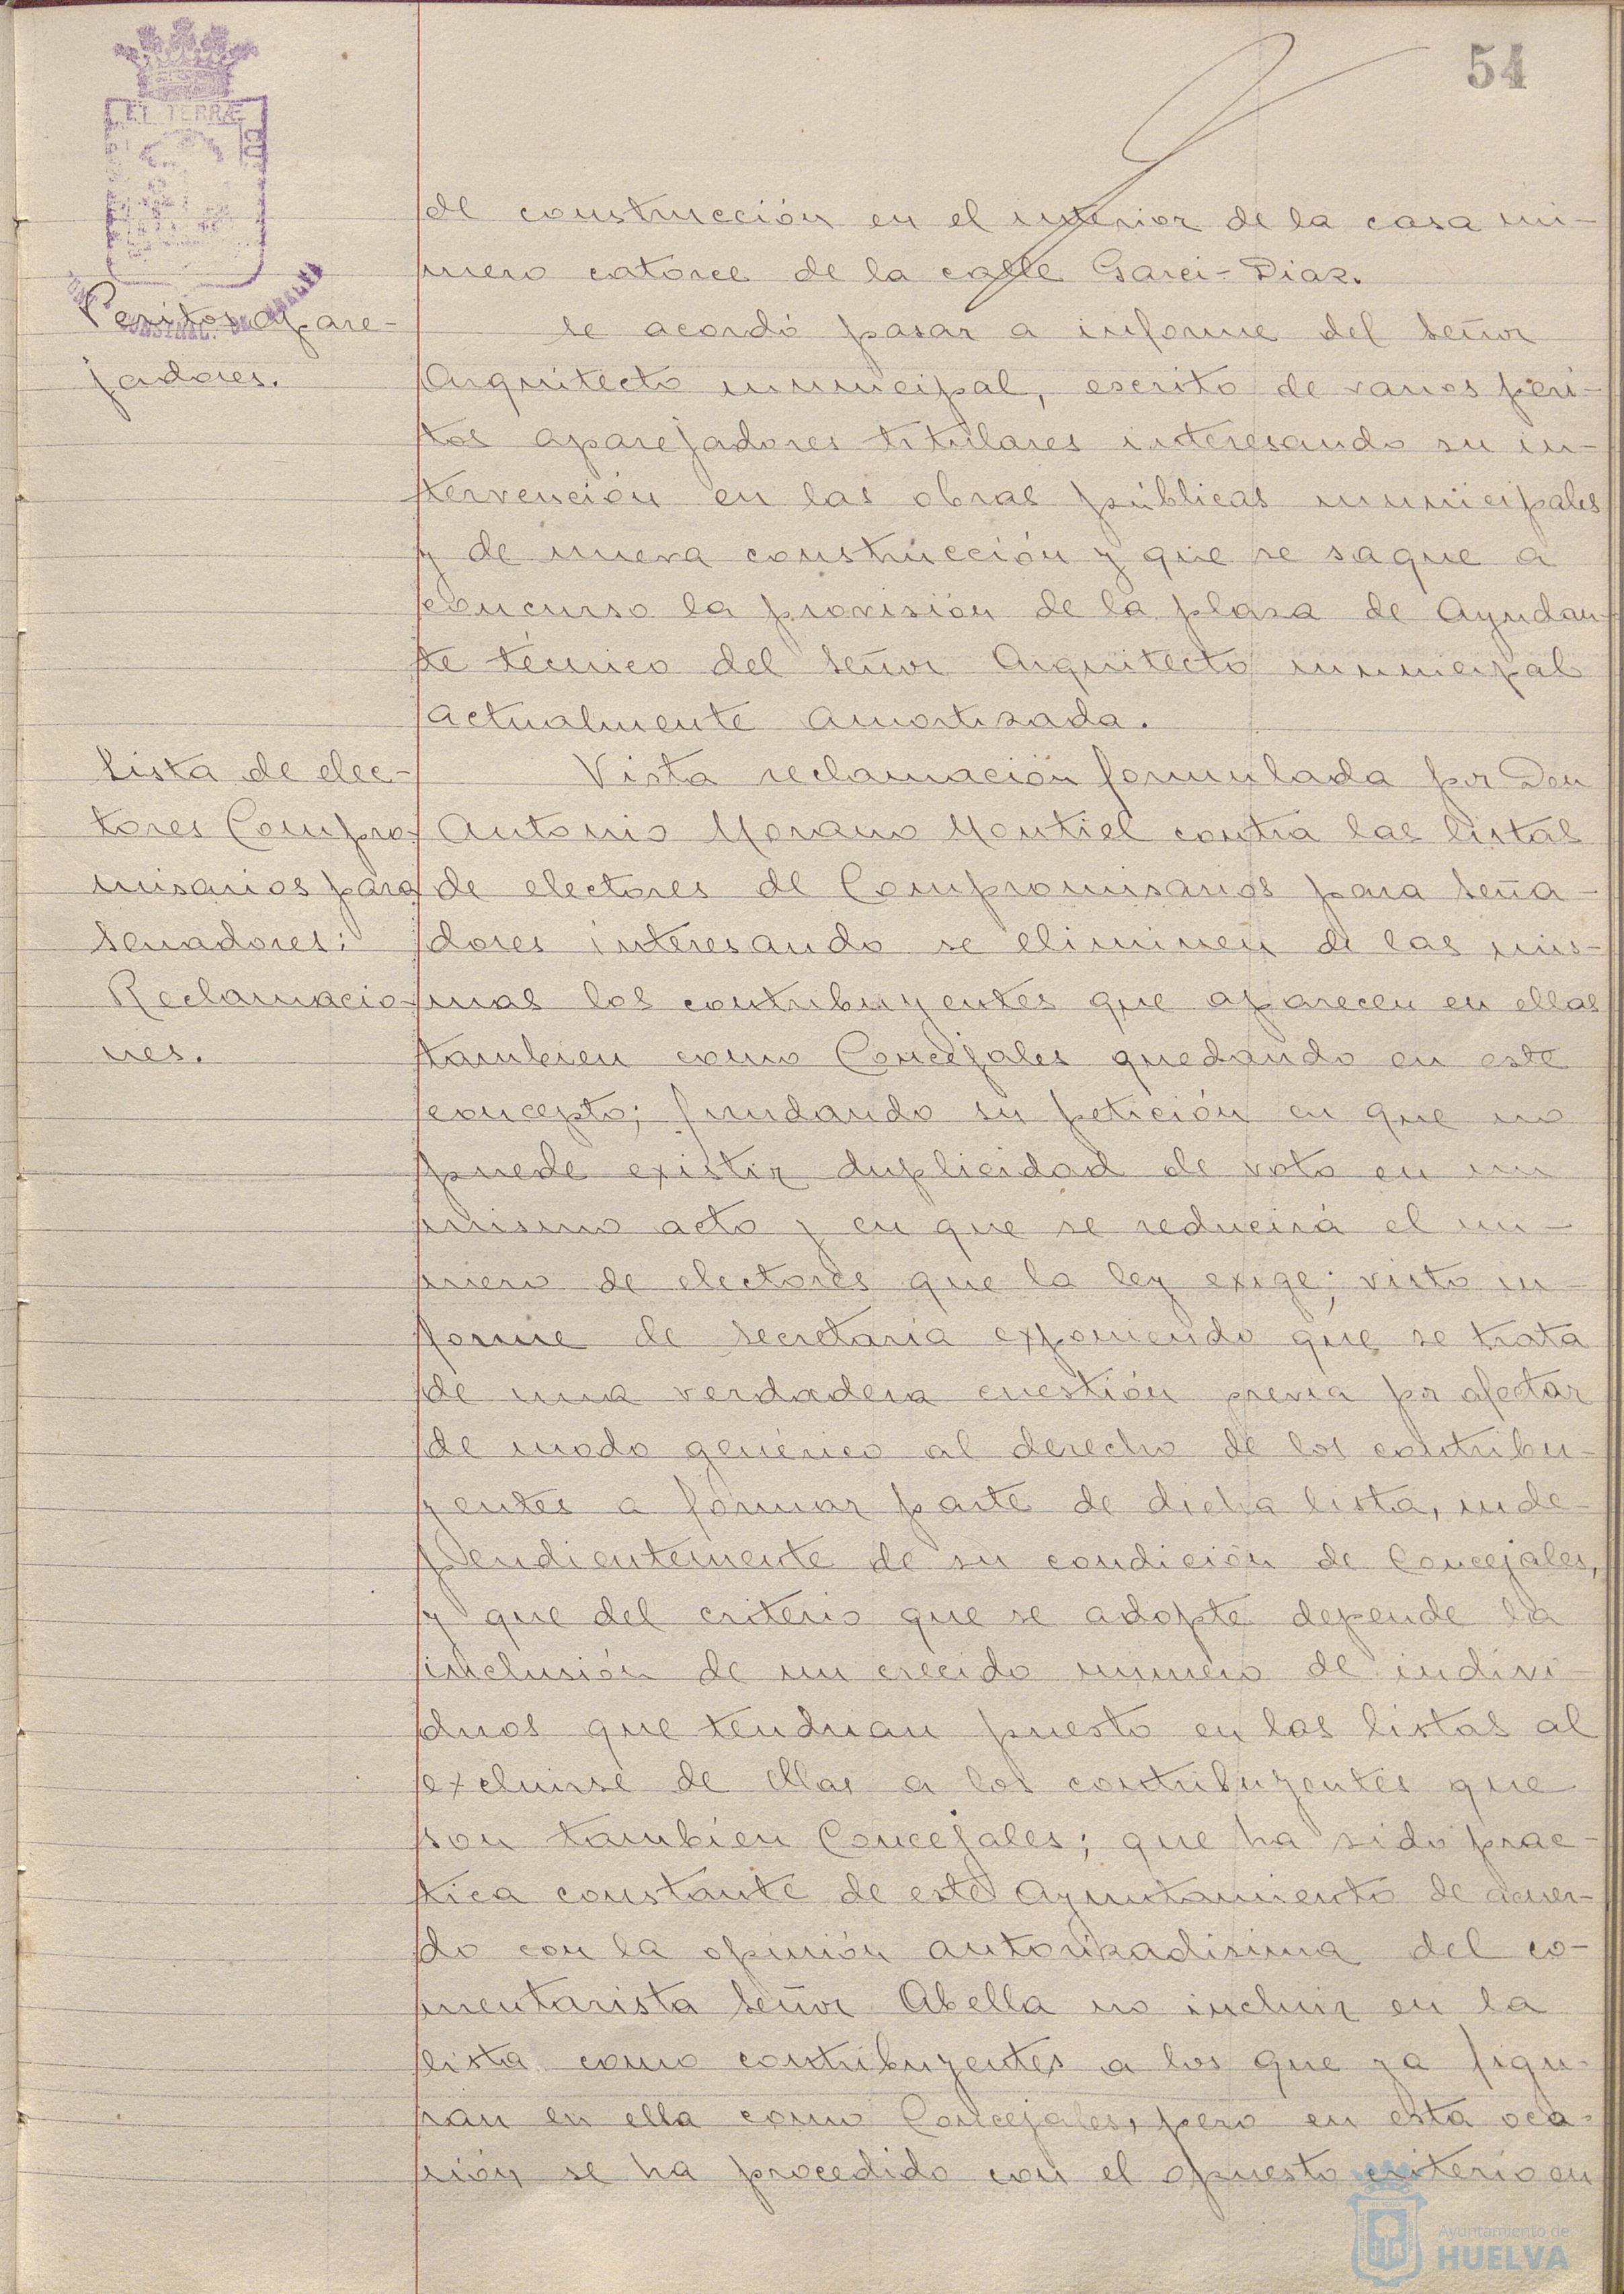 54
EL TERRÆ
CU
CONSTNAL. DE HUELVA
de construcción en el interior de la casa nú-
mero catorce de la calle Garci-Diaz.
Peritos apare-
jadores.
Se acordó pasar a informe del Señor
Arquitecto municipal, escrito de varios peri-
tos aparejadores titulares interesando su in-
tervención en las obras públicas municipales
y de nueva construcción y que se saque a
concurso la provisión de la plaza de Ayudan-
te técnico del Señor Arquitecto municipal
actualmente amortizada.
Lista de elec-
tores Compro-
misarios para
Senadores:
Reclamacio-
nes.
Vista reclamación formulada por Don
Antonio Morano Montiel contra las listas
de electores de Compromisarios para Seña-
dores interesando se eliminen de las mis-
mas los contribuyentes que aparecen en ellas
tambien como Concejales quedando en este
concepto; fundando su petición en que no
puede existir duplicidad de voto en un
mismo acto y en que se reducirá el nú-
mero de electores que la ley exige; visto in-
forme de Secretaría exponiendo que se trata
de una verdadera cuestión previa por afectar
de modo genérico al derecho de los contribu-
yentes a formar parte de dicha lista, inde-
pendientemente de su condición de Concejales,
y que del criterio que se adopte depende la
inclusión de un crecido numero de indivi-
duos que tendrian puesto en las listas al
excluirse de ellas a los contribuyentes que
son también Concejales; que ha sido prac-
tica constante de este Ayuntamiento de acuer-
do con la opinión autorizadisima del co-
mentarista Señor Abella no incluir en la
lista como contribuyentes a los que ya figu-
ran en ella como Concejales, pero en esta oca-
sión se ha procedido con el opuesto criterio en
Ayuntamiento de
HUELVA